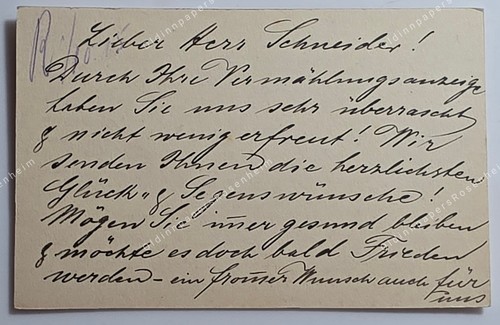 Lieber Herr Schneider!
Durch Ihre Vermählungsanzeige
haben Sie uns sehr überrascht
& nicht wenig erfreut! Wir
senden Ihnen die herzlichsten
Glück- & Segenswünsche!
Mögen Sie im̅er gesund bleiben
& möchte es doch bald Frieden
werden – ein from̅er Wunsch auch für
uns